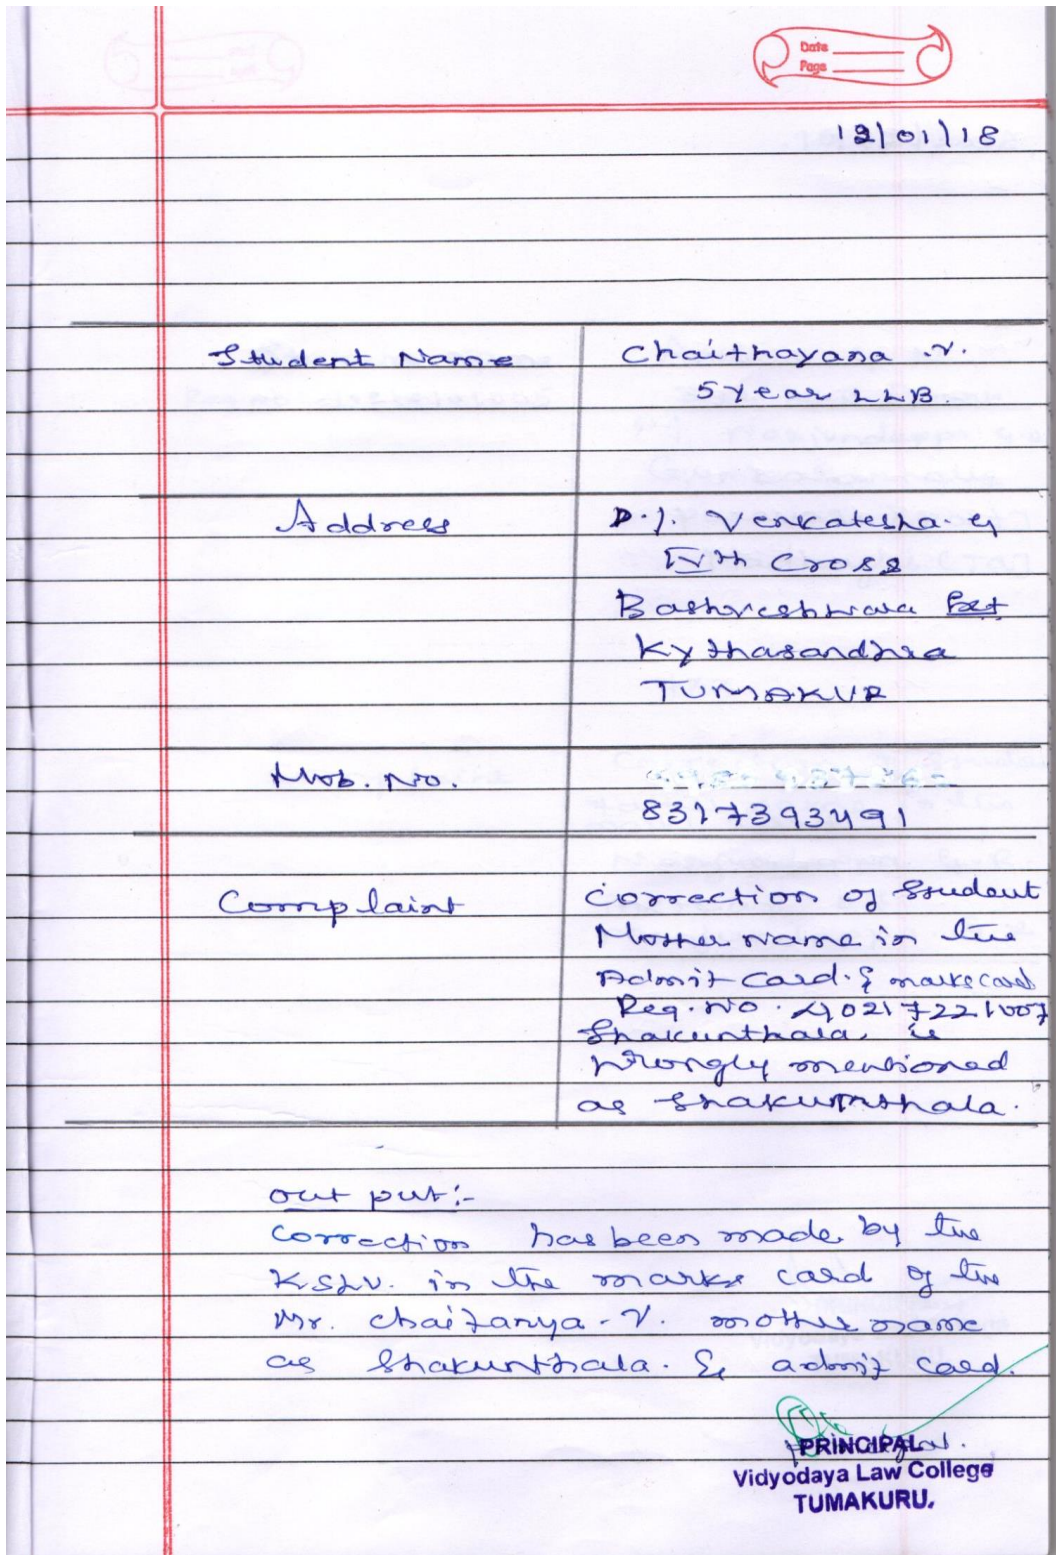 Date
Page
12/01/18
Student Name
Chaithayana .V.
5 year LLB
Address
D.J. Venkatesha.
IVth Cross
Bashveshwara
Kythasandhra
TUMAKUR
Mob. No.
8317393491
Complaint
Correction of Student
Mother name in the
Admit card. & marks card
Reg. No.
Shakunthala, is
wrongly mentioned
as
out put:-
Correction has been made by the
KSLU. in the marks card of the
Mr. Chaitanya - V. mother name
as Shakunthala. & admit card.
PRINCIPAL
Vidyodaya Law College
TUMAKURU.